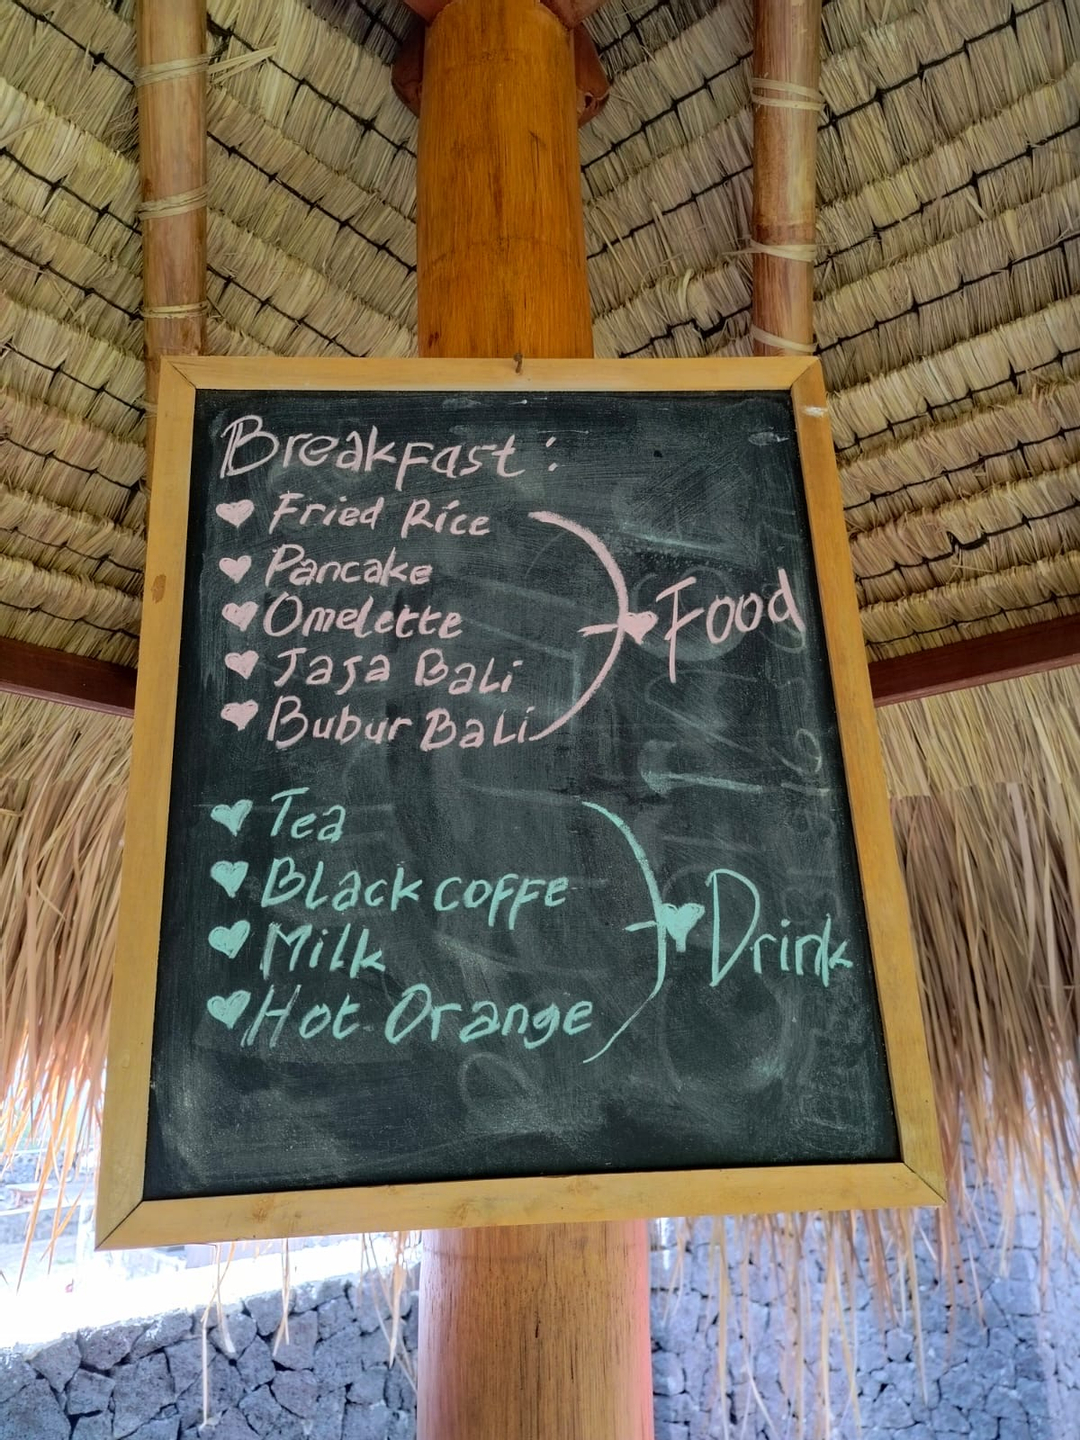 Breakfast :
Fried Rice
Pancake
Omelette
Jaja Bali
Bubur Bali
Food
Tea
Black coffe
Milk
Hot Orange
Drink